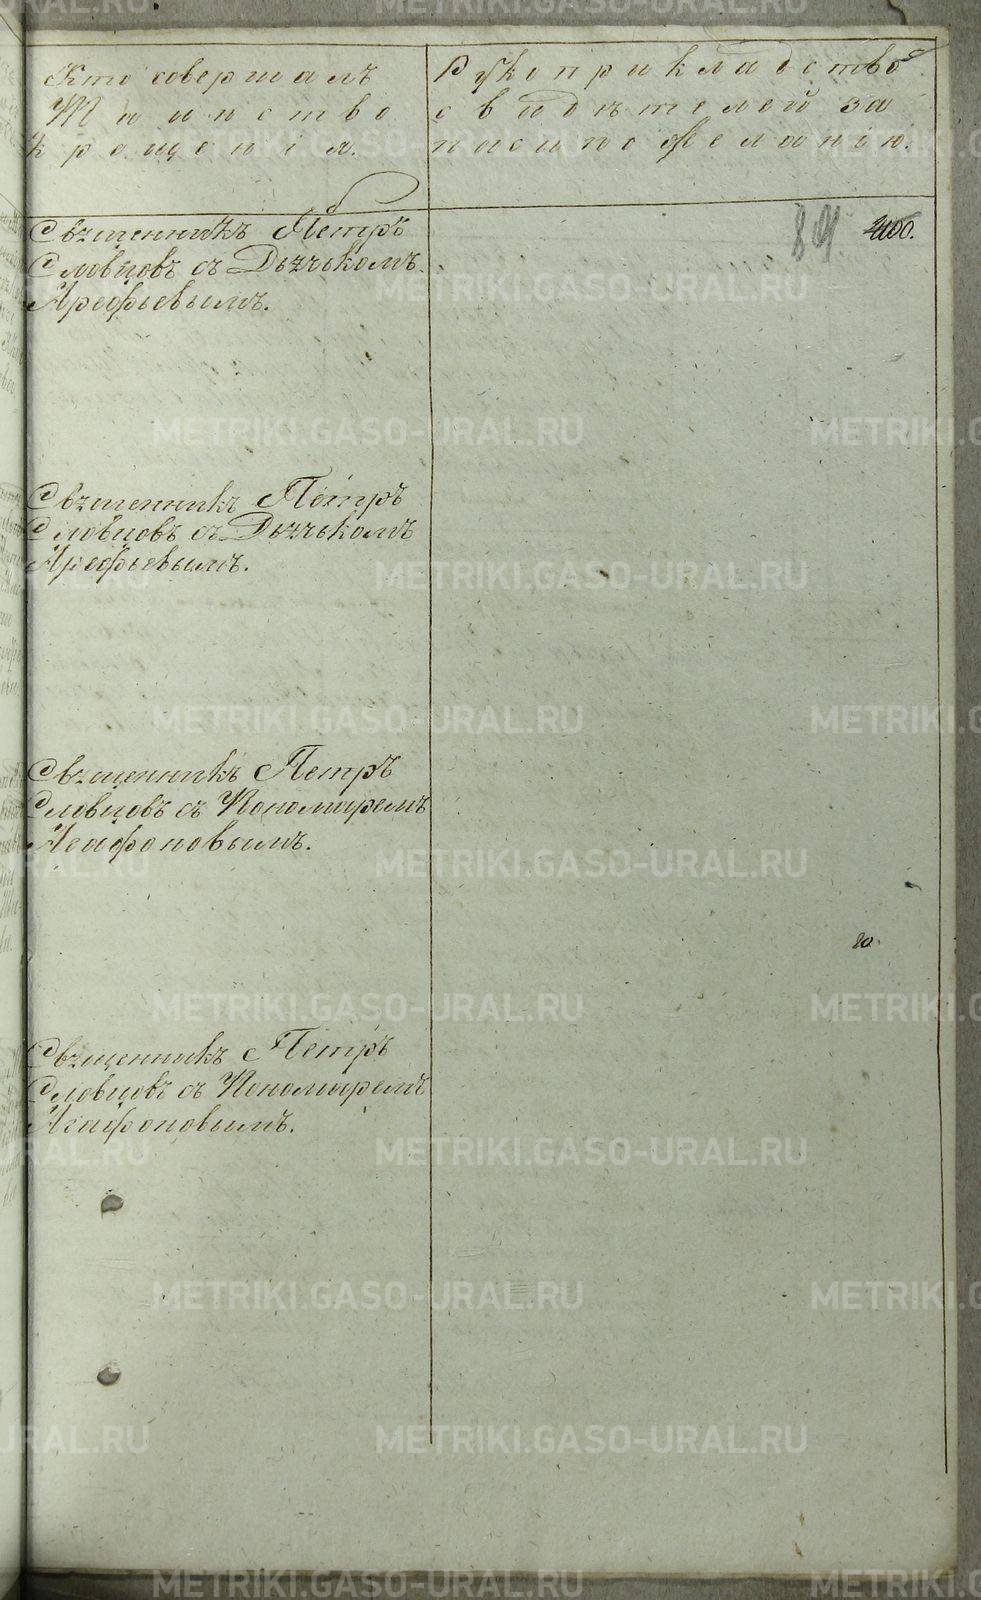 Кто совершалъ
Таинство
крещенія.
Рукоприкладство
свидѣтелей за
писи по желанію.
89
Свѧщенникъ Петръ
Словцовъ съ Дьячькомъ
Арефьевымъ.
Свѧщенникъ Петръ
Словцовъ съ Дьячькомъ
Арефьевымъ.
Свѧщенникъ Петръ
Словцовъ съ Пономаремъ
Агафоновымъ.
Свѧщенникъ Петръ
Словцовъ съ Пономаремъ
Агафоновымъ.
METRIKI.GASO-URAL.RU